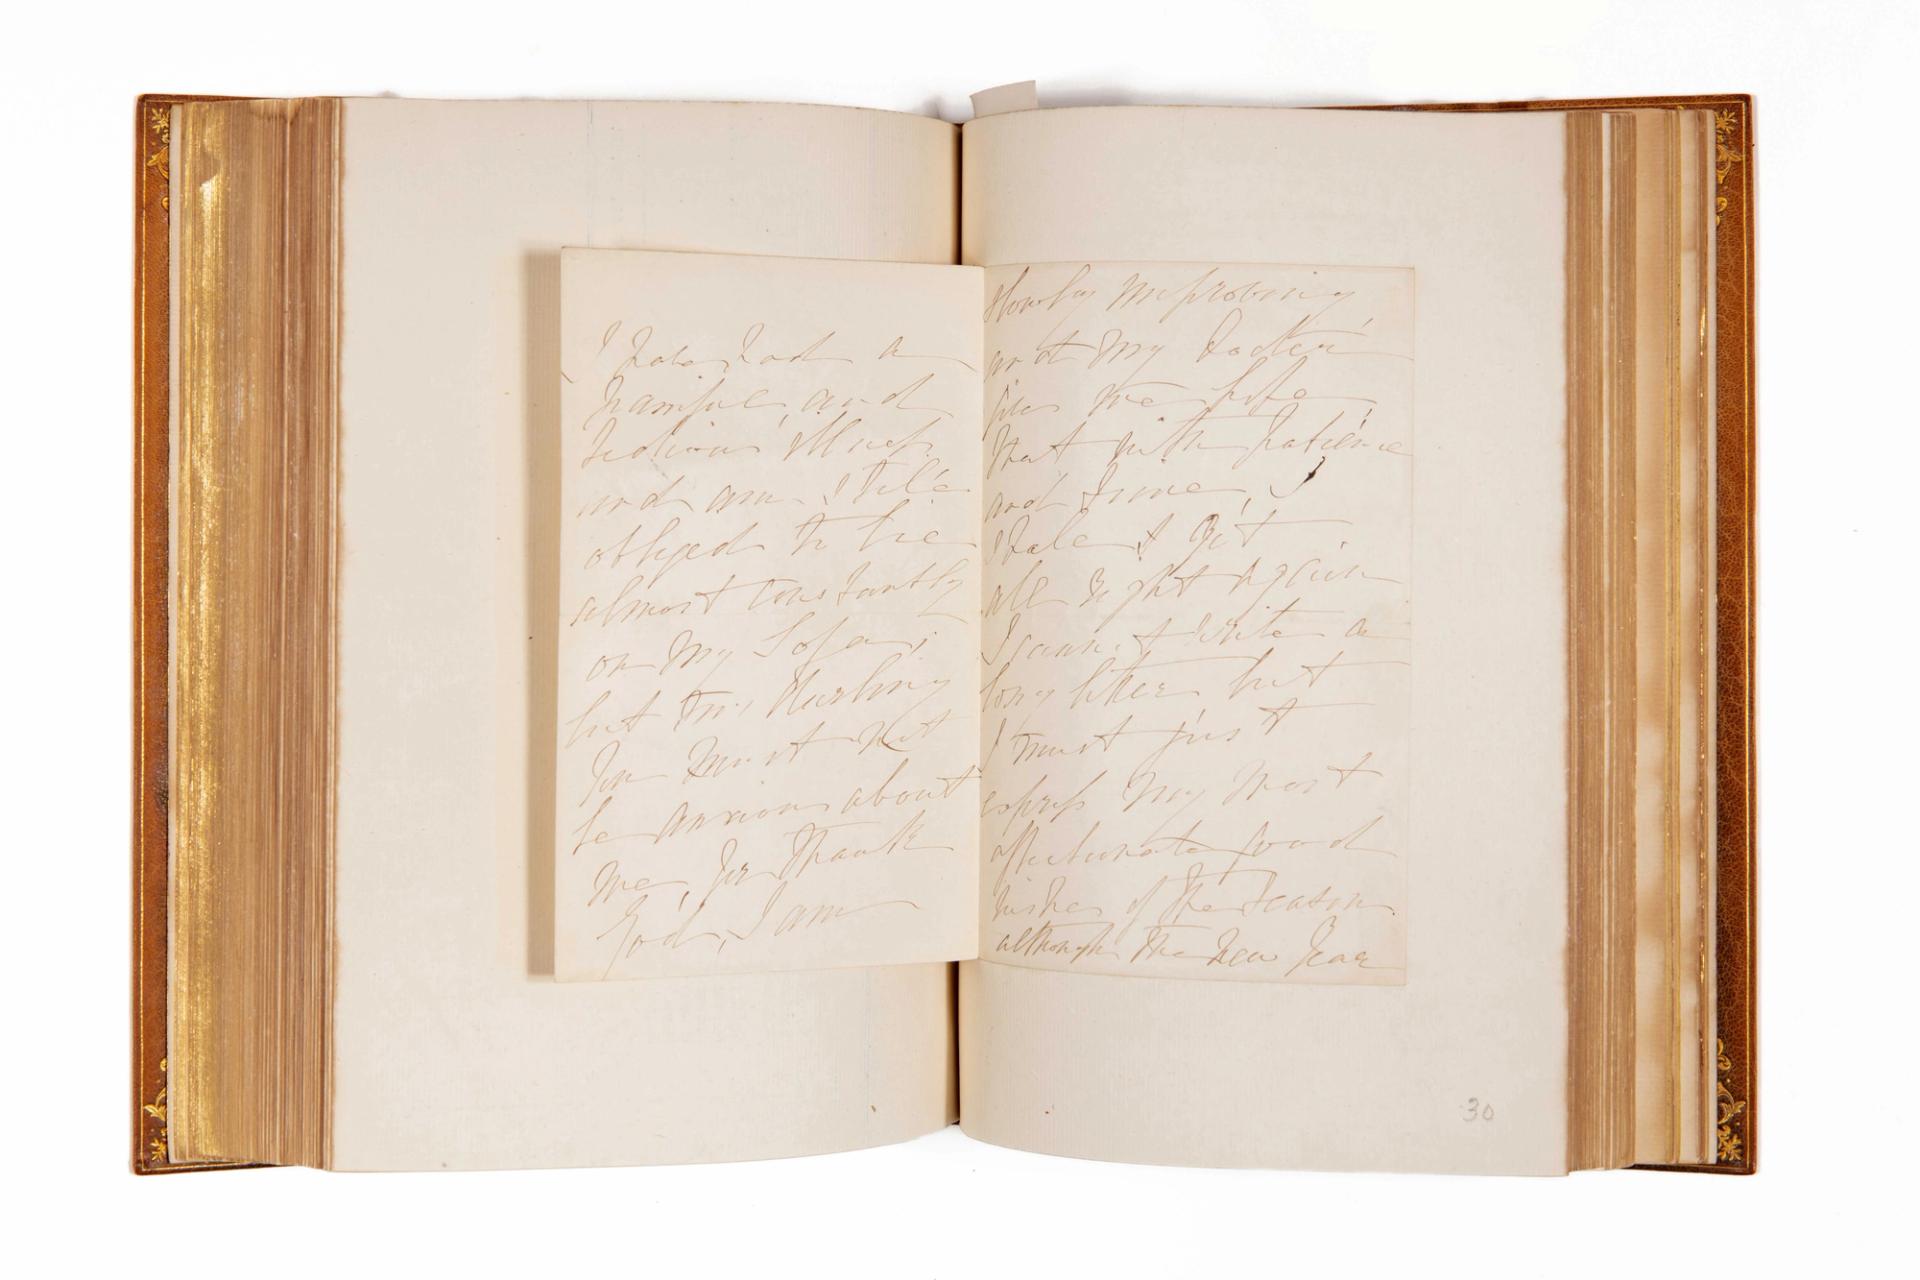 I have had a
painful and
tedious illness
and am still
obliged to lie
almost constantly
on my Sofa;
but my darling
you must not
be anxious about
me, for thank
God, I am
slowly improving
and my Doctor
gives me hope
that with patience
and time, I
shall get
all right again
I cannot write a
long letter but
I must just
express my most
affectionate good
wishes of the Season
although the New Year
30